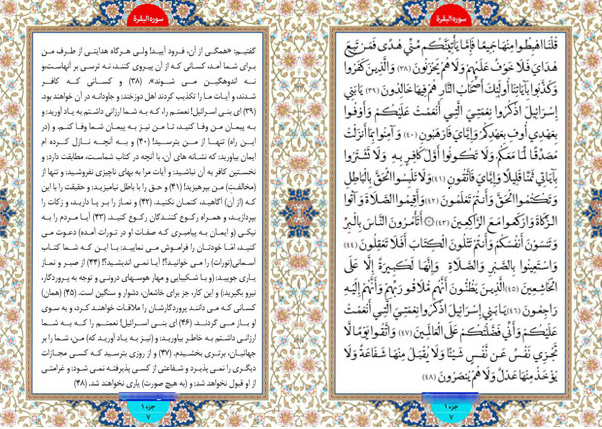 سوره البقرة
قُلْنَا اهْبِطُوا مِنْهَا جَمِيعًا فَإِمَّا يَأْتِيَنَّكُم مِّنِّي هُدًى فَمَن تَبِعَ
هُدَايَ فَلَا خَوْفٌ عَلَيْهِمْ وَلَا هُمْ يَحْزَنُونَ ﴿٣٨﴾ وَالَّذِينَ كَفَرُوا
وَكَذَّبُوا بِآيَاتِنَا أُولَٰئِكَ أَصْحَابُ النَّارِ هُمْ فِيهَا خَالِدُونَ ﴿٣٩﴾ يَا بَنِي
إِسْرَائِيلَ اذْكُرُوا نِعْمَتِيَ الَّتِي أَنْعَمْتُ عَلَيْكُمْ وَأَوْفُوا
بِعَهْدِي أُوفِ بِعَهْدِكُمْ وَإِيَّايَ فَارْهَبُونِ ﴿٤٠﴾ وَآمِنُوا بِمَا أَنزَلْتُ
مُصَدِّقًا لِّمَا مَعَكُمْ وَلَا تَكُونُوا أَوَّلَ كَافِرٍ بِهِ وَلَا تَشْتَرُوا
بِآيَاتِي ثَمَنًا قَلِيلًا وَإِيَّايَ فَاتَّقُونِ ﴿٤١﴾ وَلَا تَلْبِسُوا الْحَقَّ بِالْبَاطِلِ
وَتَكْتُمُوا الْحَقَّ وَأَنتُمْ تَعْلَمُونَ ﴿٤٢﴾ وَأَقِيمُوا الصَّلَاةَ وَآتُوا
الزَّكَاةَ وَارْكَعُوا مَعَ الرَّاكِعِينَ ﴿٤٣﴾ ۞ أَتَأْمُرُونَ النَّاسَ بِالْبِرِّ
وَتَنسَوْنَ أَنفُسَكُمْ وَأَنتُمْ تَتْلُونَ الْكِتَابَ أَفَلَا تَعْقِلُونَ ﴿٤٤﴾
وَاسْتَعِينُوا بِالصَّبْرِ وَالصَّلَاةِ وَإِنَّهَا لَكَبِيرَةٌ إِلَّا عَلَى
الْخَاشِعِينَ ﴿٤٥﴾ الَّذِينَ يَظُنُّونَ أَنَّهُم مُّلَاقُو رَبِّهِمْ وَأَنَّهُمْ إِلَيْهِ
رَاجِعُونَ ﴿٤٦﴾ يَا بَنِي إِسْرَائِيلَ اذْكُرُوا نِعْمَتِيَ الَّتِي أَنْعَمْتُ
عَلَيْكُمْ وَأَنِّي فَضَّلْتُكُمْ عَلَى الْعَالَمِينَ ﴿٤٧﴾ وَاتَّقُوا يَوْمًا لَّا
تَجْزِي نَفْسٌ عَن نَّفْسٍ شَيْئًا وَلَا يُقْبَلُ مِنْهَا شَفَاعَةٌ وَلَا
يُؤْخَذُ مِنْهَا عَدْلٌ وَلَا هُمْ يُنصَرُونَ ﴿٤٨﴾
جزء ۱
۷
سوره البقرة
گفتیم: «همگی از آن، فرود آیید! ولی هرگاه هدایتی از طرف من
برای شما آمد، کسانی که از آن پیروی کنند، نه ترسی بر آنهاست، و
نه اندوهگین می شوند». (۳۸) و کسانی که کافر
شدند، و آیات ما را تکذیب کردند اهل دوزخند؛ و جاودانه در آن خواهند بود.
(۳۹) ای بنی اسرائیل! نعمتم را، که به شما ارزانی داشتم به یاد آورید؛ و
به پیمان من وفا کنید، تا من نیز به پیمان شما وفا کنم. و (در
این راه) تنها از من بترسید! (۴۰) و به آنچه نازل کرده ام
ایمان بیاورید؛ که نشانه های آن، با آنچه در کتاب شماست، مطابقت دارد؛ و
نخستین کافر به آن نباشید؛ و آیات مرا به بهای ناچیزی نفروشید؛ و تنها از
(مخالفت) من بپرهیزید! (۴۱) و حق را با باطل نیامیزید؛ و حقیقت را با این
که (از آن) آگاهید، کتمان نکنید. (۴۲) و نماز را بر پا دارید، و زکات را
بپردازید، و همراه رکوع کنندگان رکوع کنید. (۴۳) آیا مردم را به
نیکی (و ایمان به پیامبری که صفات او در تورات آمده) دعوت می
کنید، امّا خودتان را فراموش می نمایید؛ با این که شما کتاب
آسمانی(تورات) را می خوانید؟! آیا نمی اندیشید؟! (۴۴) از صبر و نماز
یاری جویید؛ (و با شکیبایی و مهار هوسهای درونی و توجه به پروردگار،
نیرو بگیرید؛) و این کار، جز برای خاشعان، دشوار و سنگین است. (۴۵) (همان)
کسانی که می دانند پروردگارشان را ملاقات خواهند کرد، و به سوی
او باز می گردند. (۴۶) ای بنی اسرائیل! نعمتم را که به شما
ارزانی داشتم به خاطر بیاورید؛ و (نیز به یاد آورید که) من، شما را بر
جهانیان، برتری بخشیدم. (۴۷) و از روزی بترسید که کسی مجازات
دیگری را نمی پذیرد و شفاعتی از کسی پذیرفته نمی شود؛ و غرامتی
از او قبول نخواهد شد؛ و (به هیچ صورت) یاری نخواهند شد. (۴۸)
جزء ۱
۷